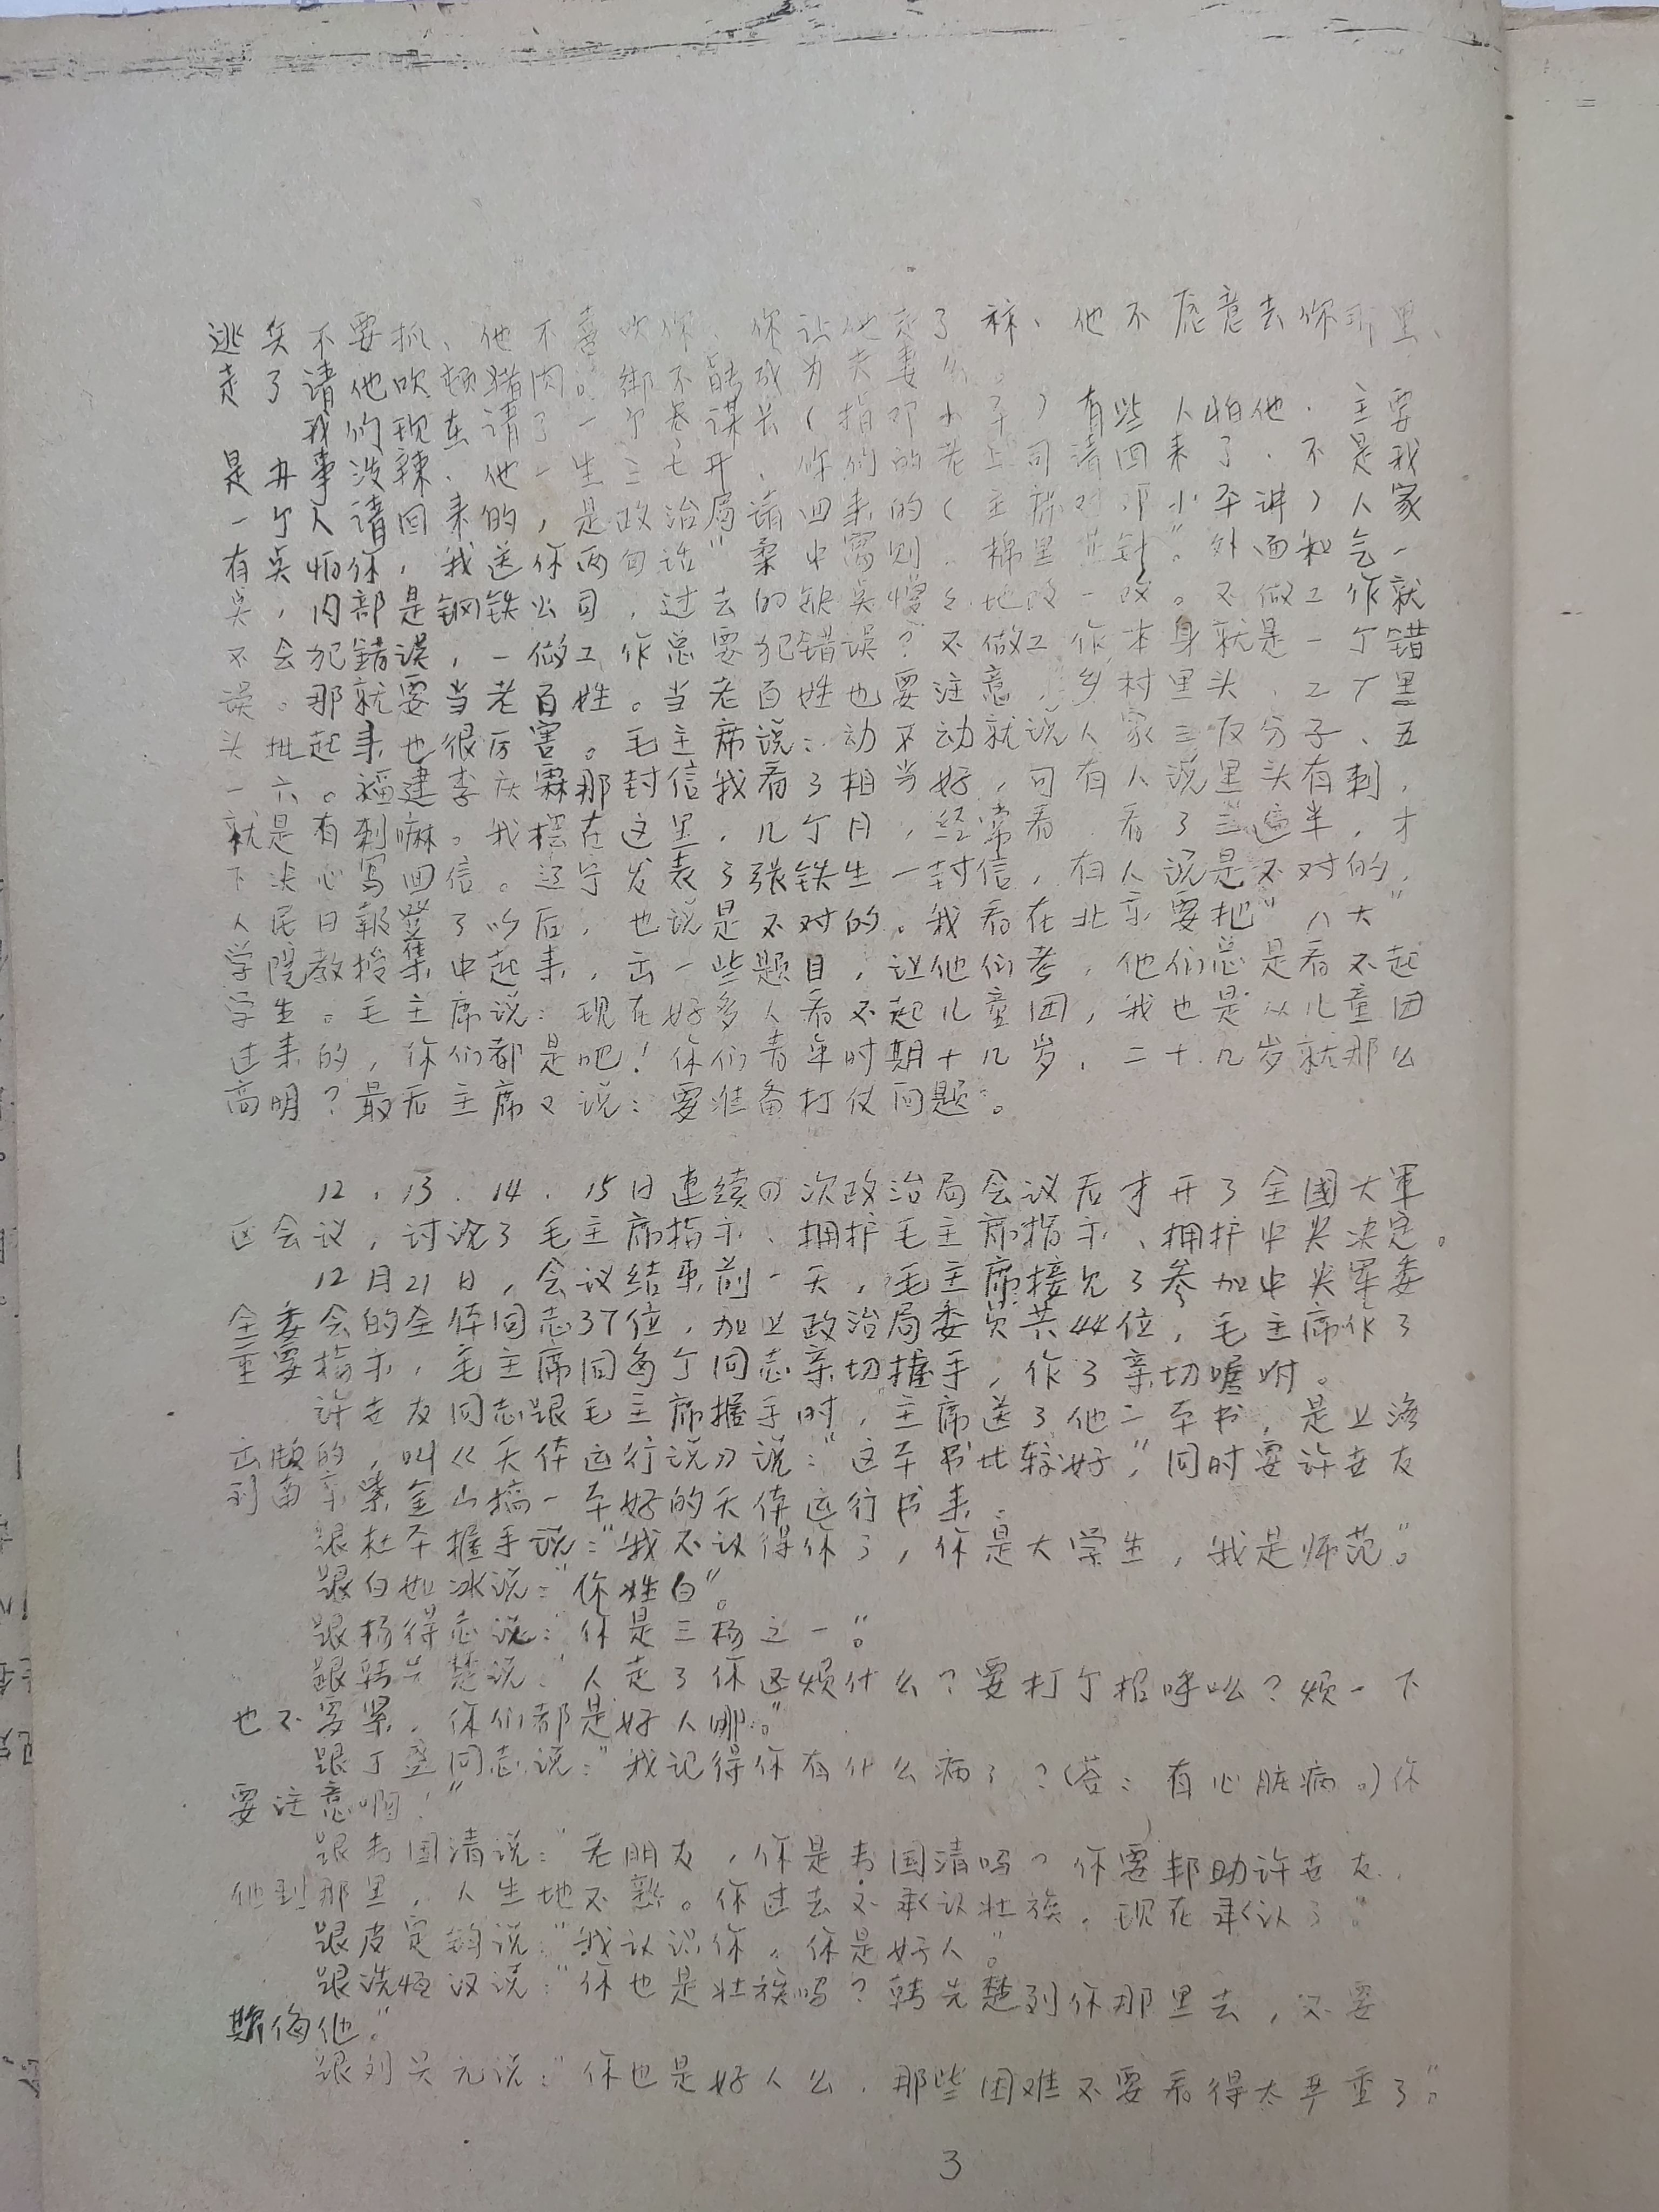 逃兵不要抓、他不喜吹你、你让他走了 、他不愿意去你那里、
走了请他吃顿猪肉。绑不能成为夫妻么。
我们现在请了一个参谋长（指邓小平）有些人怕他.主要
是办事泼辣、他一生三七开，你们的老上司请回来了.不是我
一个人请回来的，是政治局请回来的（主席对邓小平讲）人家
有点怕你，我送你两句话"柔中寓刚.棉里 针"。外面和气一
点，内部是钢铁公司，过去的缺点慢々地改一改。不做工作就
不会犯错误，一做工作总要犯错误？不做工作本身就是一个错
误。那就要当老百姓。当老百姓也要注意，乡村里头、工厂里
头批起来也很厉害。毛主席说：动不动就说人家三反分子、五
一六。福建李庆霖那封信我看了相当好，可有人说里头有刺，
就是有刺嘛。我摆在这里，几个月，经常看.看了三遍半，才
下决心写回信。辽宁发表了张铁生一封信，有人说是不对的，
人民日報登了以后，也说是不对的。我看在北京要把"八大"
学院教授集中起来，出一些题目，让他们考，他们总是看不起
学生。毛主席说：现在好多人看不起儿童团，我也是从儿童团
过来的，你们都是吧！你们青年时期十几岁，二十几岁就那么
高明？最后主席又说：要准备打仗问题。
12、13、14、15日連续四次政治局会议后才开了全國大軍
区会议，讨论了毛主席指示、拥护毛主席指示、拥护中央决定。
12月21日，会议结束前一天，毛主席接见了参加中央军委
全委会的全体同志37位，加上政治局委员共44位，毛主席作了
重要指示，毛主席同每个同志亲切握手，作了亲切嘱咐。
许世友同志跟毛主席握手时，主席送了他一本书，是上海
出版的，叫《天体运行说》说："这本书比较好，"同时要许世友
到南京紫金山搞一本好的天体运行书来。
跟杜平握手说："我不认得你了，你是大学生，我是师范"。
跟白如冰说："你姓白"。
跟杨得志说："你是三杨之一"。
跟韩先楚说："人走了你还烦什么？要打个招呼么？烦一下
也不要紧，你们都是好人哪。"
跟丁盛同志说："我记得你有什么病了？（答：有心脏病。）你
要注意啊！"
跟韦国清说："老朋友，你是韦国清吗？你要邦助许世友，
他到那里，人生地不熟。你过去不承认壮族，现在承认了"。
跟皮定钧说："我认识你，你是好人"。
跟洗恒汉说："你也是壮族吗？韩先楚到你那里去，不要
欺侮他。"
跟刘兴元说："你也是好人么，那些困难不要看得太严重了"。
3